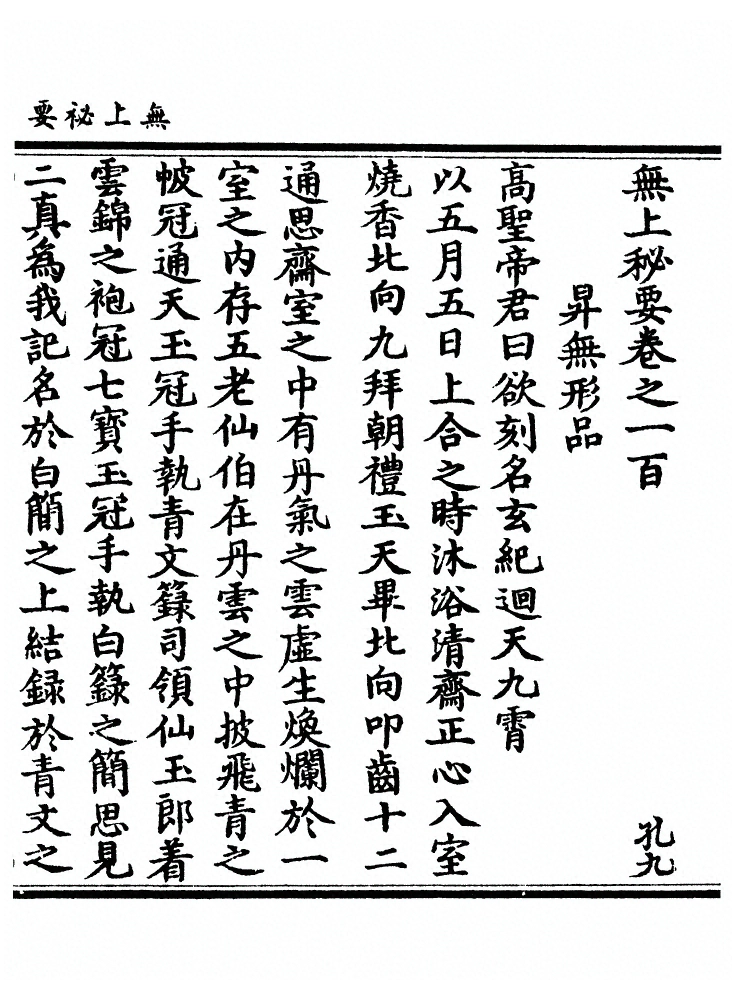 無上祕要
無上秘要卷之一百　孔九
昇無形品
高聖帝君曰欲刻名玄紀迴天九霄
以五月五日上合之時沐浴清齋正心入室
燒香北向九拜朝禮玉天畢北向叩齒十二
通思齋室之中有丹氣之雲虛生煥爛於一
室之内存五老仙伯在丹雲之中披飛青之
帔冠通天玉冠手執青文籙司領仙玉郎着
雲錦之袍冠七寶玉冠手執白籙之簡思見
二真為我記名於白簡之上結録於青文之